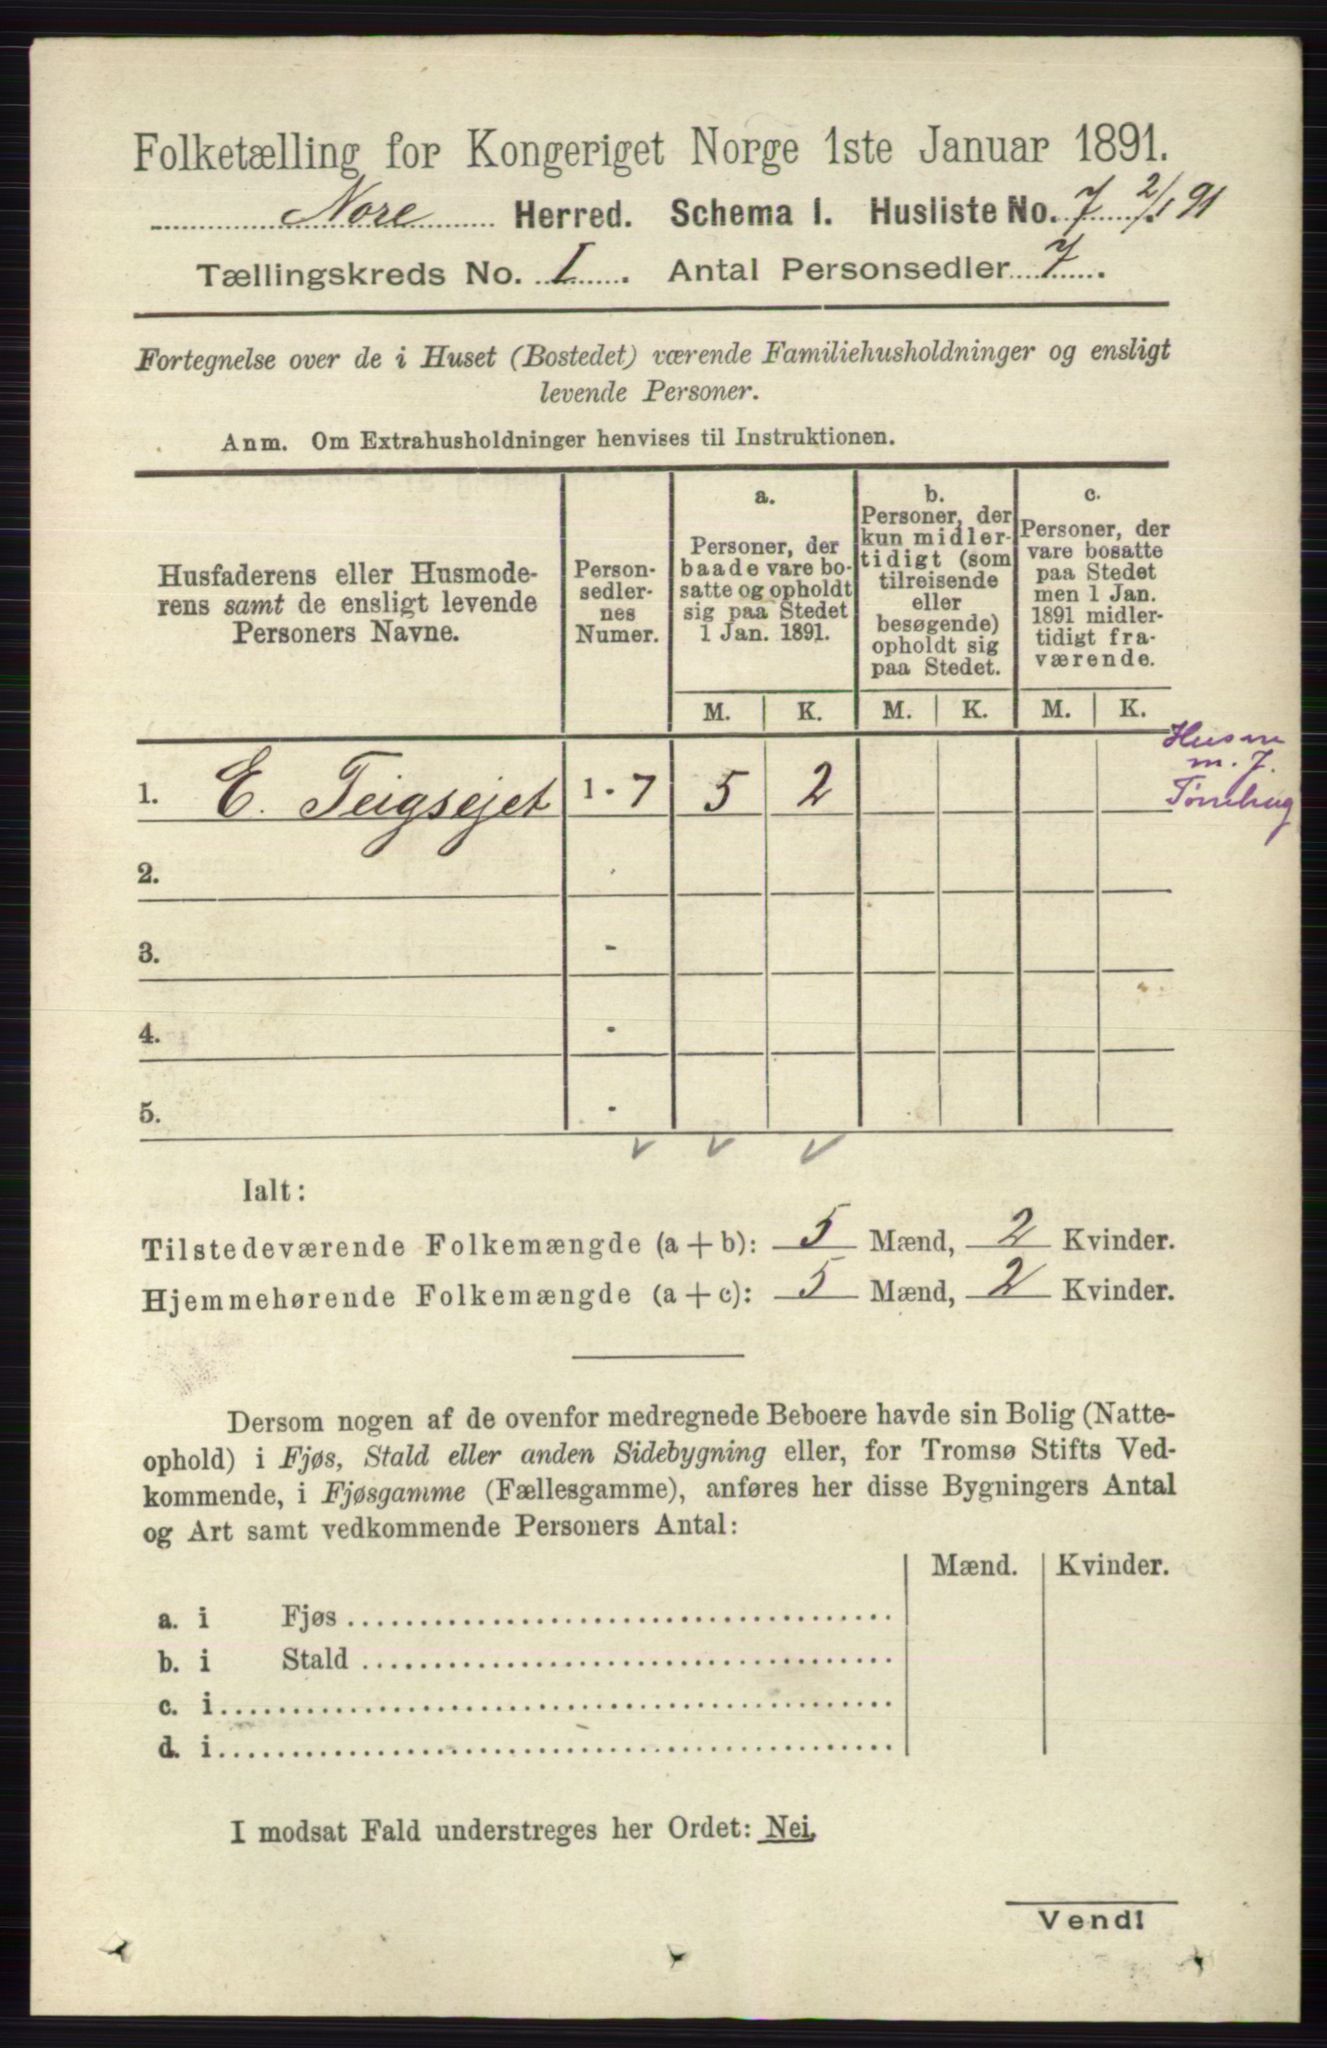 Folketælling for Kongeriget Norge 1ste Januar 1891.
Nore Herred. Schema I. Husliste No. 7 2/1 91
Tællingskreds No. I. Antal Personsedler 7.
Fortegnelse over de i Huset (Bostedet) værende Familiehusholdninger og ensligt
levende Personer.
Anm. Om Extrahusholdninger henvises til Instruktionen.
Husfaderens eller Husmode-
rens samt de ensligt levende
Personers Navne.
Person-
sedler-
nes
Numer.
a.
Personer, der
baade vare bo-
satte og opholdt
sig paa Stedet
1 Jan. 1891.
b.
Personer, der
kun midler-
tidigt (som
tilreisende
eller
besøgende)
opholdt sig
paa Stedet.
c.
Personer, der
vare bosatte
paa Stedet
men 1 Jan.
1891 midler-
tidigt fra-
værende.
M. K. M. K. M. K.
Husm
m. J.
1. E. Teigsejet 1 - 7 5 2
2.
3. -
4. -
5. -
Ialt:
Tilstedeværende Folkemængde (a + b): 5 Mænd, 2 Kvinder.
Hjemmehørende Folkemængde (a + c): 5 Mænd, 2 Kvinder.
Dersom nogen af de ovenfor medregnede Beboere havde sin Bolig (Natte-
ophold) i Fjøs, Stald eller anden Sidebygning eller, for Tromsø Stifts Ved-
kommende, i Fjøsgamme (Fællesgamme), anføres her disse Bygningers Antal
og Art samt vedkommende Personers Antal:
Mænd. Kvinder.
a. i Fjøs
b. i Stald
c. i
d. i
I modsat Fald understreges her Ordet: Nei.
Vend!